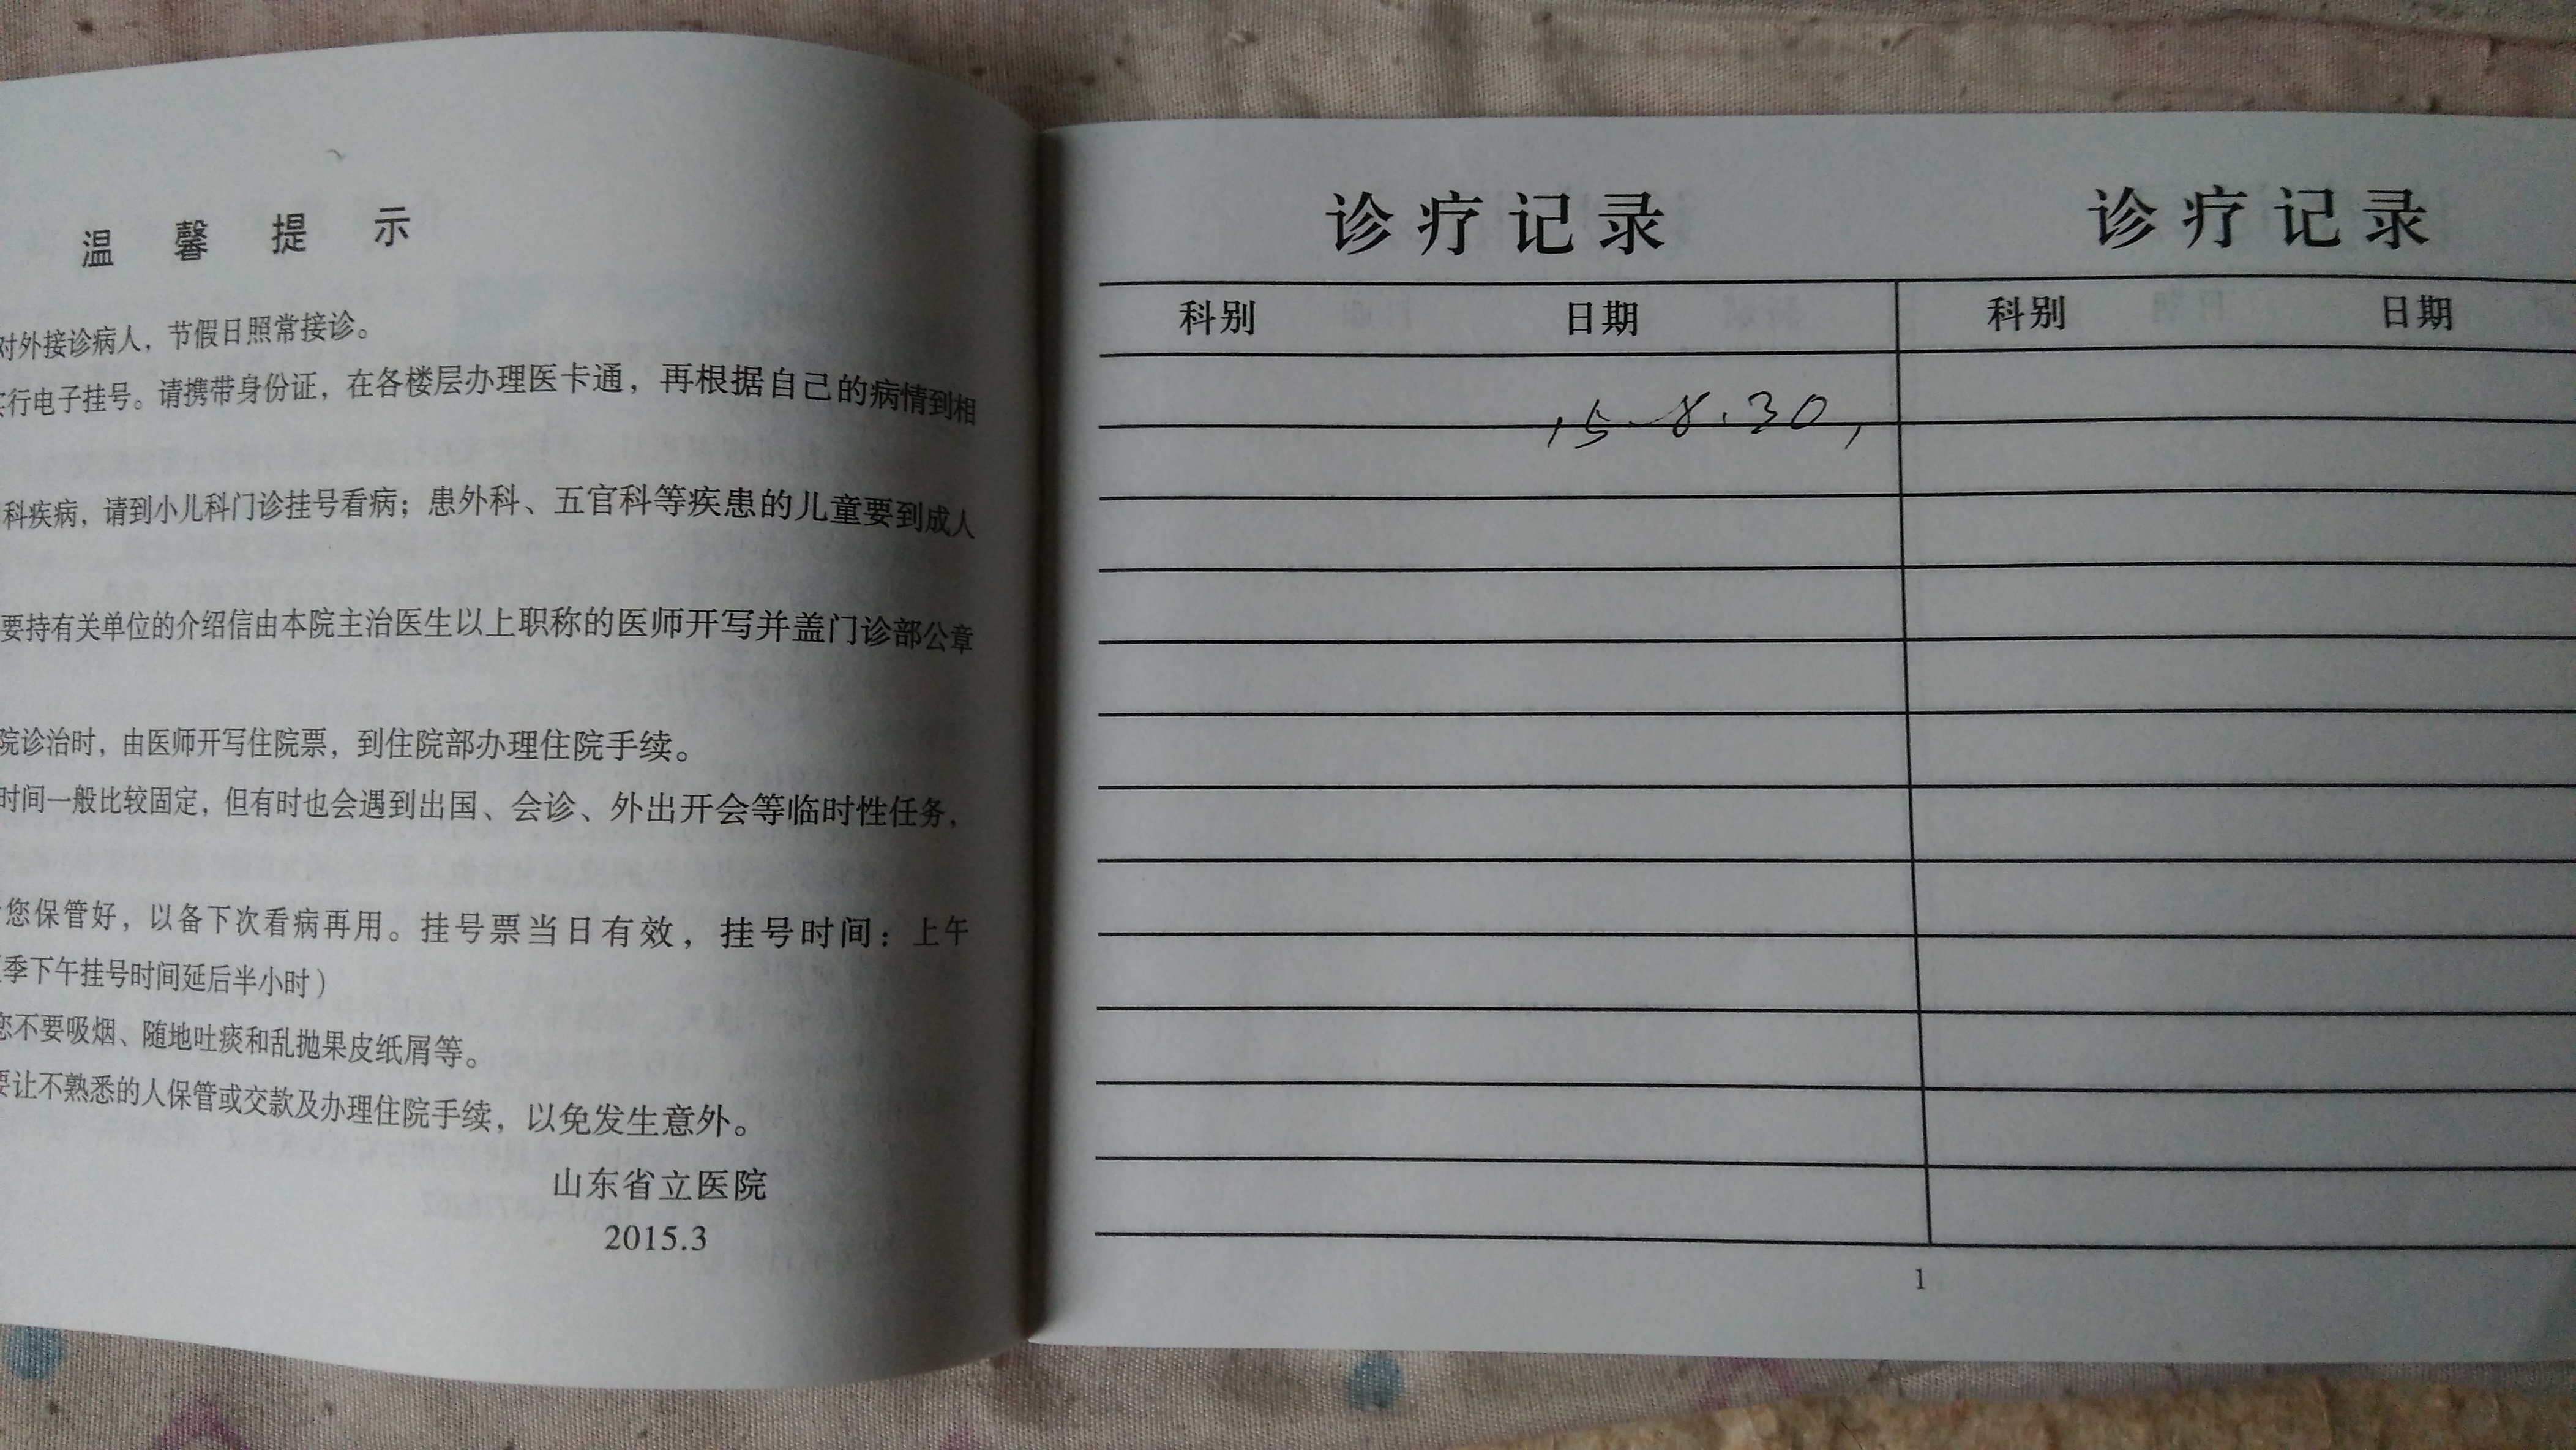 温馨提示
对外接诊病人，节假日照常接诊。
行电子挂号。请携带身份证，在各楼层办理医卡通，再根据自己的病情到相
科疾病，请到小儿科门诊挂号看病；患外科、五官科等疾患的儿童要到成人
要持有关单位的介绍信由本院主治医生以上职称的医师开写并盖门诊部公章
院诊治时，由医师开写住院票，到住院部办理住院手续。
时间一般比较固定，但有时也会遇到出国、会诊、外出开会等临时性任务，
您保管好，以备下次看病再用。挂号票当日有效，挂号时间：上午
季下午挂号时间延后半小时）
您不要吸烟、随地吐痰和乱抛果皮纸屑等。
要让不熟悉的人保管或交款及办理住院手续，以免发生意外。
山东省立医院
2015.3
诊疗记录
科别 日期
15-8.30,
诊疗记录
科别 日期
1